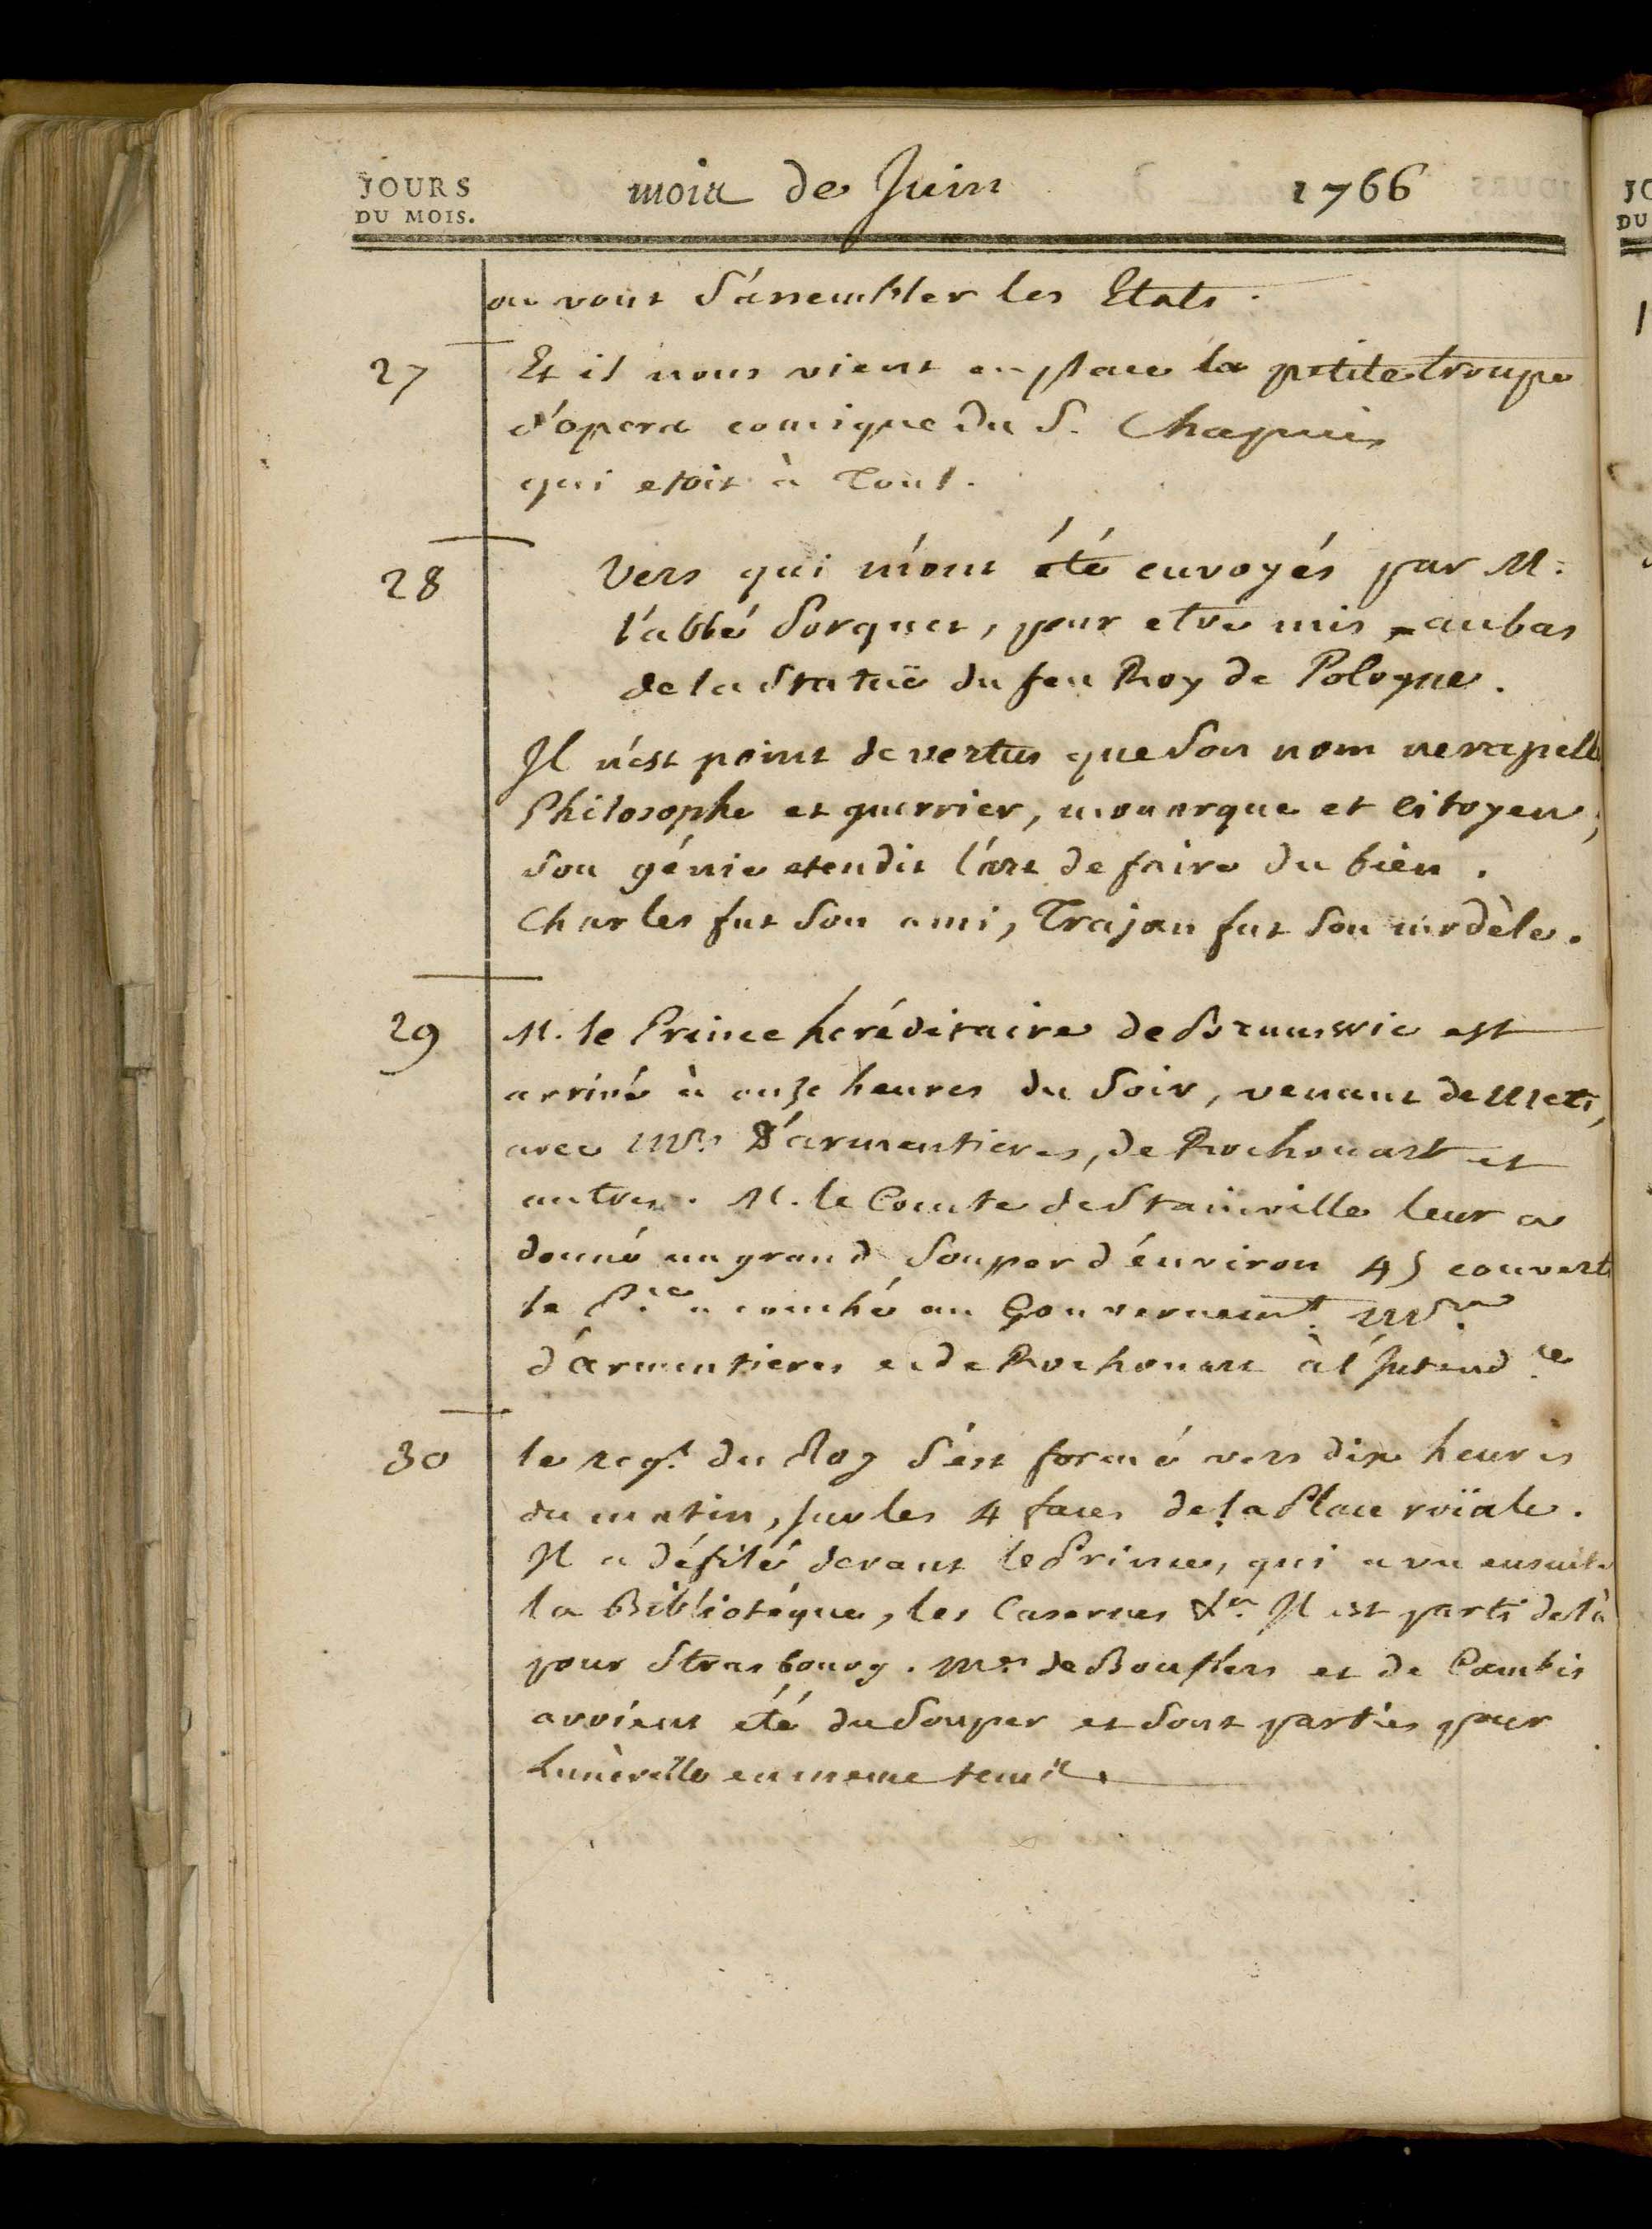 JOURS
DU MOIS.
mois de Juin 1766
ou vont s'assembler les Etats.
27 Et il nous vient en place la petite troupe
d'opera comique du S. Chapuis
qui etoit à Toul.
28 Vers qui m'ont été envoyés par M.
l'abbé Porquet, pour etre mis au bas
de la Statuë du feu Roy de Pologne.
Il n'est point de vertus que son nom ne rapelle
Philosophe et guerrier, monarque et citoyen;
son génie etendit l'art de faire du bien.
Charles fut son ami, Trajan fut son modèle.
29 M. le Prince heréditaire de Brunswic est
arrivé à onze heures du soir, venant de Metz,
avec Mrs. D'armentieres, de Rochouart et
autres. M. le Comte de Stainville leur a
donné un grand souper d'énviron 45 couverts
le P.ce a couché au Gouvernemt. Mrs.
d'armentieres et de Rochouart à l'Intend.ce
30 le regt. du Roy s'est formé vers dix heures
du matin, sur les 4 faces de la Place roïale.
Il a défilé devant le Prince, qui a vu ensuite
la Bibliotéque, les Casernes &a. Il est parti de là
pour Strasbourg. Mes. de Bouflers et de Cambis
avoient été du souper et sont parties pour
Lunéville en meme tems.
JO
DU
1